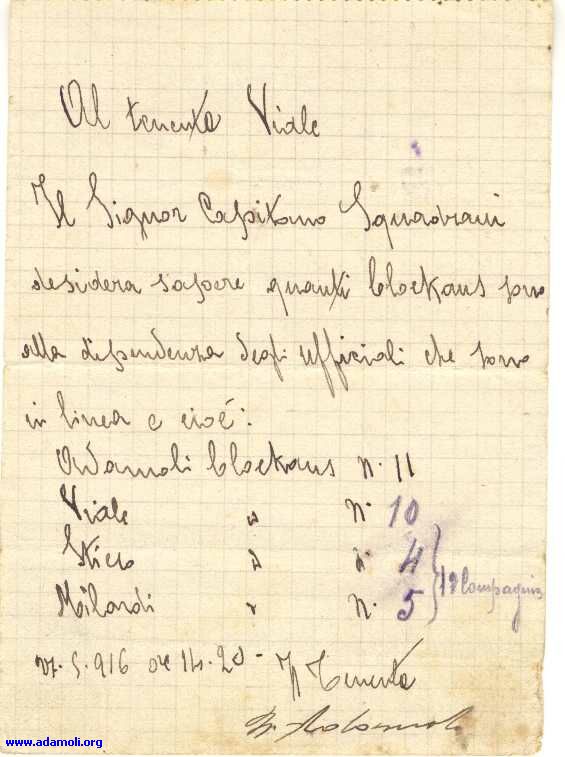 Al tenente Viale
Il Signor Capitano Squadrani
desidera sapere quanti blockaus sono
alla dipendenza degli ufficiali che sono
in linea e cioè:
Adamoli blockaus N. 11
Viale " N. 10
" N. 4
Milardi " N. 5
12 Compagnia
27.5.916 ore 14.20 - Il Tenente
Adamoli
www.adamoli.org